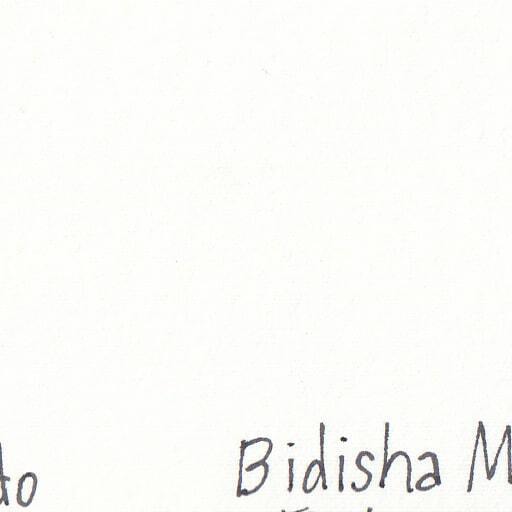 Bidisha M